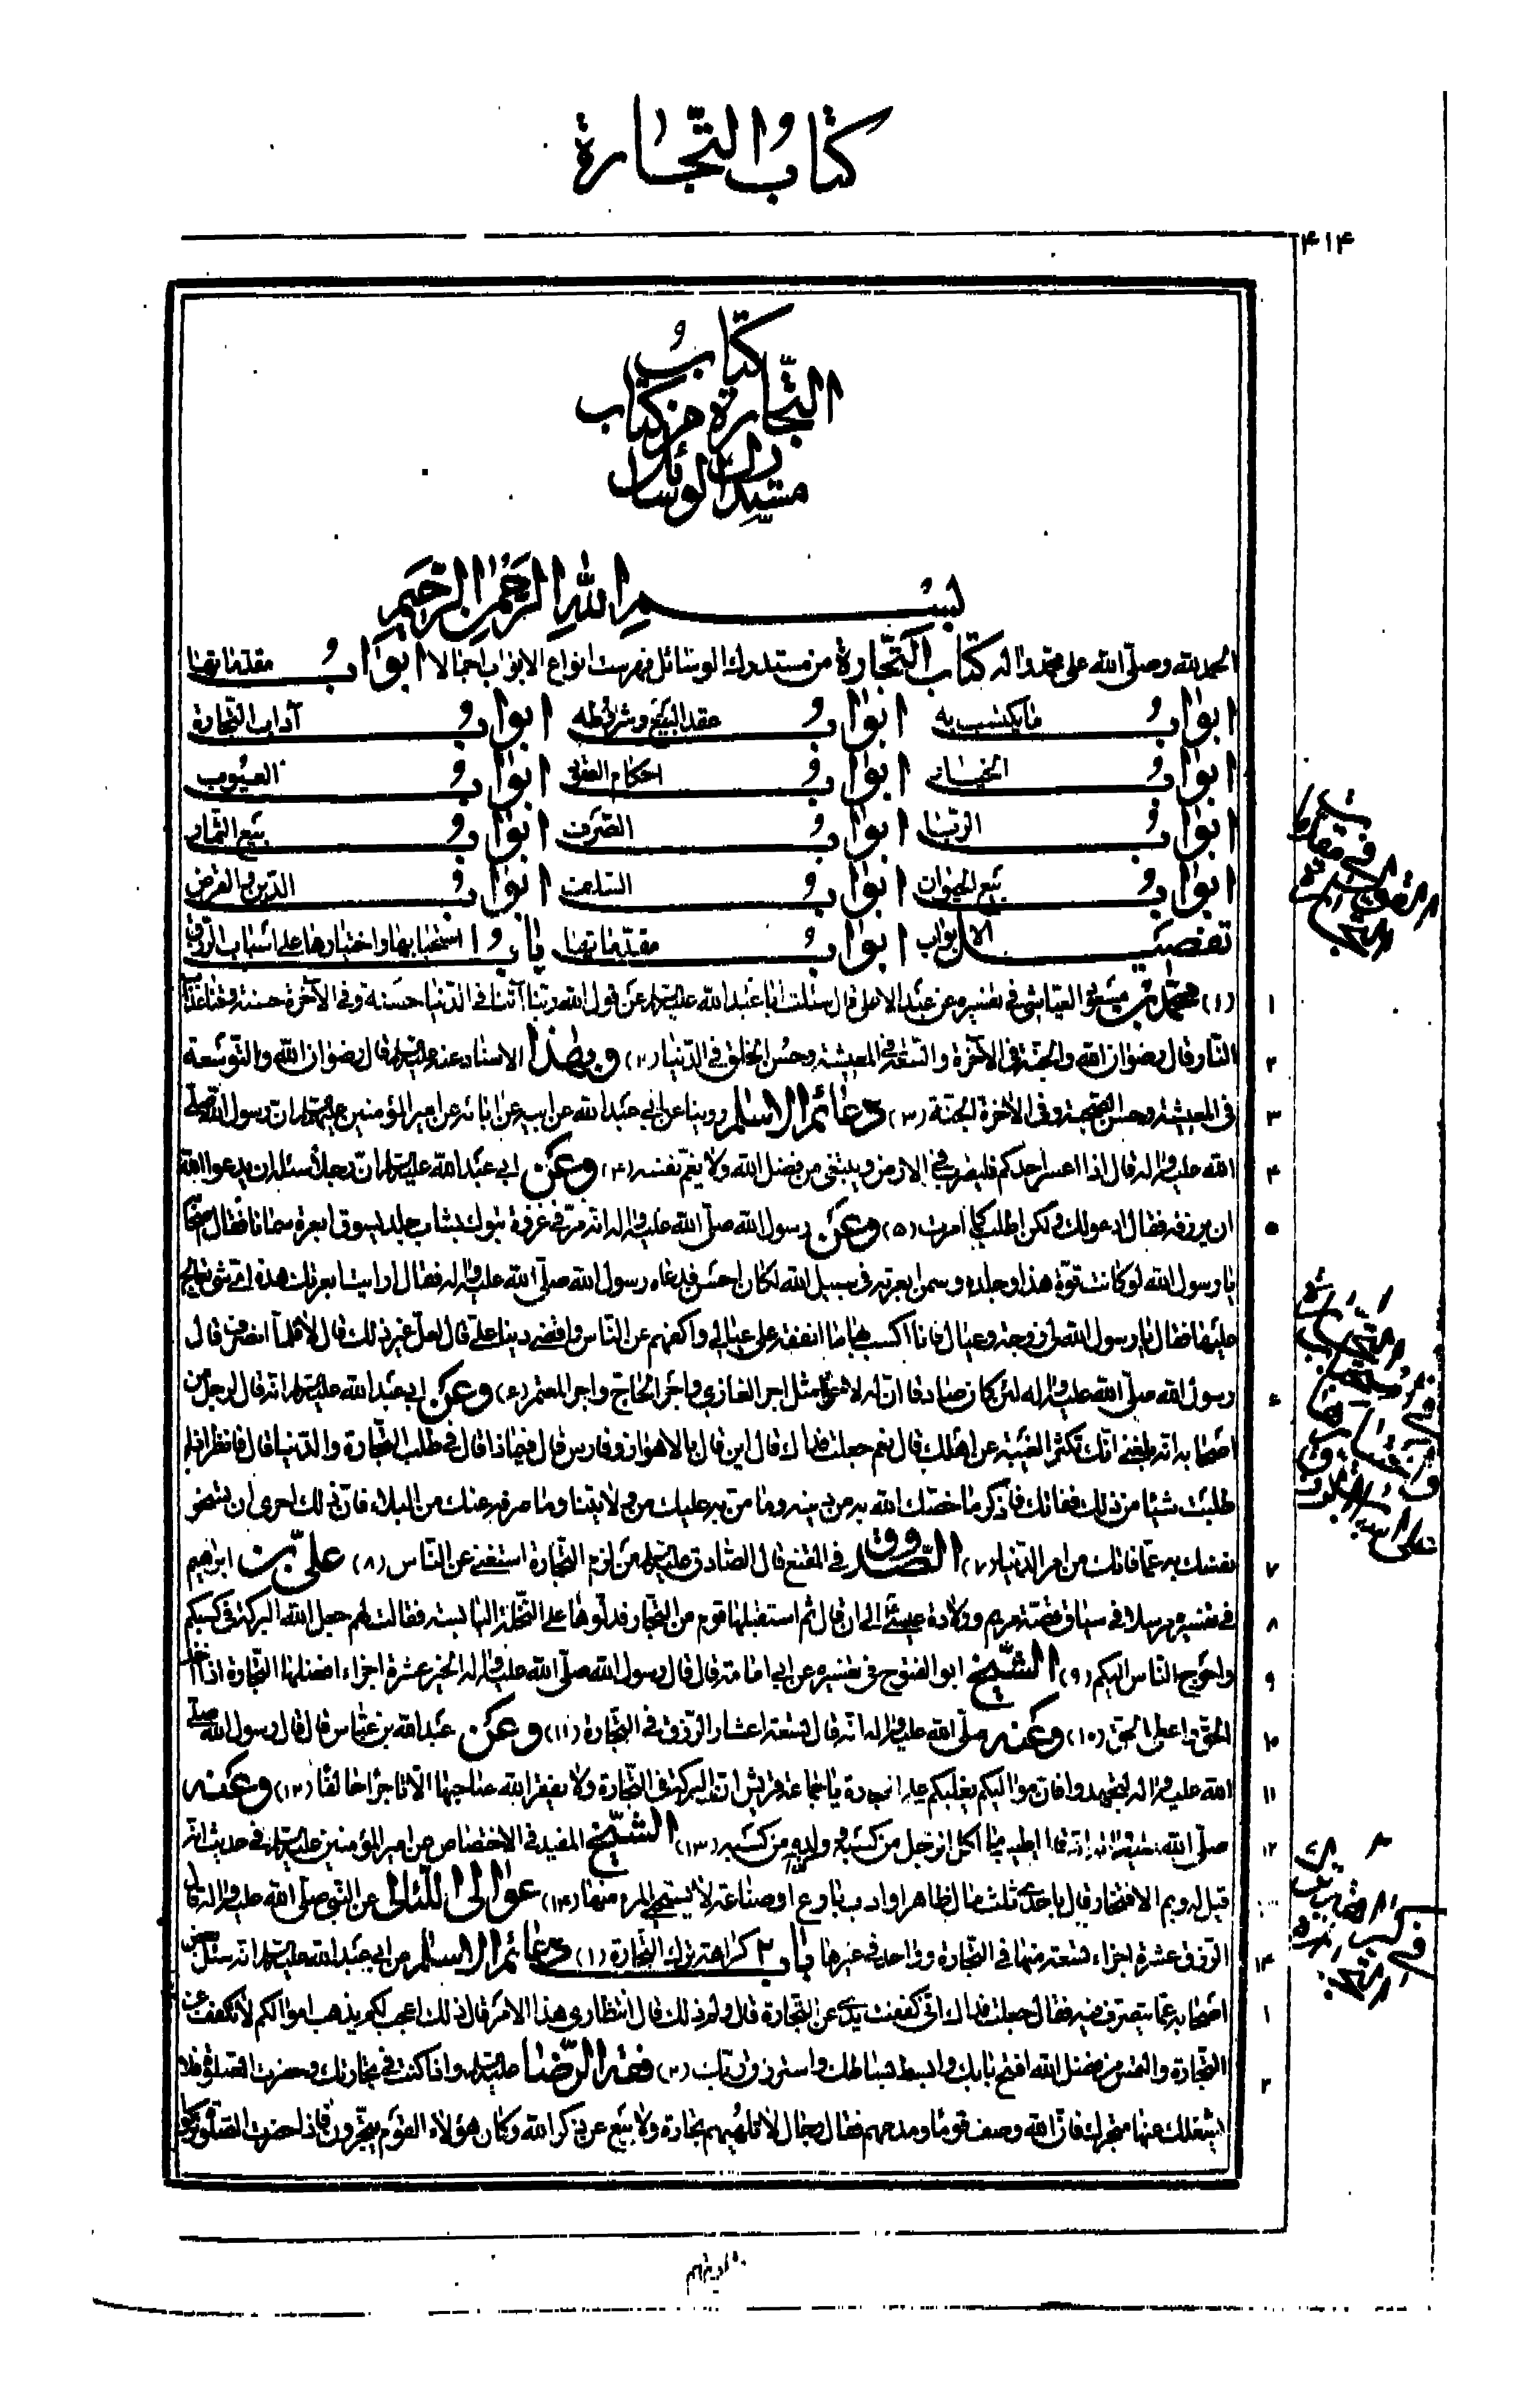 كتاب التجارة
۴۱۴
كتاب
التجارة من كتاب
مستدرك الوسائل
بسم الله الرحمن الرحيم
الحمد لله وصلّى الله على محمّد وآله كتاب التجارة من مستدرك الوسائل فهرست انواع الابواب اجمالا ابواب مقدّماتها
ابواب ما يكتسب به ابواب عقد البيع وشرائطه ابواب آداب التجارة
ابواب الخيار ابواب احكام العقود ابواب العيوب
ابواب الربا ابواب الصرف ابواب بيع الثمار
ابواب بيع الحيوان ابواب السلف ابواب الدين والقرض
تفصيل الابواب ابواب مقدّماتها باب ۱ استحبابها واختيارها على اسباب الرزق
۱ (۱) محمّد بن مسعود العياشي في تفسيره عن عبد الاعلى قال سئلت ابا عبد الله عليه السلام عن قول الله ربّنا آتنا في الدّنيا حسنة وفي الآخرة حسنة وقنا عذاب
۲ النار قال رضوان الله والجنّة في الآخرة والسعة في المعيشة وحسن الخلق في الدّنيا (۲) وبهذا الاسناد عنه عليه السلام قال رضوان الله والتوسعة
۳ في المعيشة وحسن الصحبة وفي الآخرة الجنّة (۳) دعائم الاسلام روينا عن ابي عبد الله عن ابيه عن آبائه عن امير المؤمنين عليهم السلام ان رسول الله صلّى
۴ الله عليه وآله قال اذا اعسر احدكم فليضرب في الارض ويبتغي من فضل الله ولا يغم نفسه (۴) وعن ابي عبد الله عليه السلام ان رجلا سئله ان يدعو الله
۵ ان يرزقه فقال لا ادعو لك ولكن اطلب كما امرت (۵) وعن رسول الله صلّى الله عليه وآله انه مرّ في غزوة تبوك بشاب جلد يسوق ابعرة سمانا فقال اصحابه
يا رسول الله لو كانت قوّة هذا وجلده وسمن ابعرته في سبيل الله لكان احسن فدعاه رسول الله صلّى الله عليه وآله فقال ارايت ابعرتك هذه اي شيء تعالج
عليها فقال يا رسول الله لي زوجة وعيال فانا اكسب بها ما انفقه على عيالي واكفهم عن الناس واقضي دينا عليّ قال لعلّ غير ذلك قال لا فلمّا انصرف قال
۶ رسول الله صلّى الله عليه وآله لئن كان صادقا انّ له لاجرا مثل اجر الغازي واجر الحاج واجر المعتمر (۶) وعن ابي عبد الله عليه السلام انه قال لرجل من
اصحابه انه بلغني انّك تكثر الغيبة عن اهلك قال نعم جعلت فداك قال اين قال بالاهواز وفارس قال فيما ذا قال في طلب التجارة والدّنيا قال فانظر اذا
طلبت شيئا من ذلك ففاتك فاذكر ما خصّك الله به من دينه وما منّ به عليك من ولايتنا وما صرفه عنك من البلاء فانّ ذلك احرى ان يسخو
۷ نفسك به عمّا فاتك من امر الدّنيا (۷) الصّدوق في المقنع قال الصّادق عليه السلام من لزم التجارة استغنى عن النّاس (۸) عليّ بن ابراهيم
۸ في تفسيره مرسلا في سياق قصّة مريم وولادة عيسى الى ان قال ثم استقبلها قوم من التجار فدلّوها على النخلة اليابسة فقالت لهم جعل الله البركة في كسبكم
۹ واحوج الناس اليكم (۹) الشّيخ ابو الفتوح في تفسيره عن ابي امامة قال قال رسول الله صلّى الله عليه وآله الخير عشرة اجزاء افضلها التجارة اذا اخذ
۱۰ الحق واعطى الحق (۱۰) وعنه صلّى الله عليه وآله انه قال تسعة اعشار الرزق في التجارة (۱۱) وعن عبد الله بن عباس قال قال رسول الله صلّى
۱۱ الله عليه وآله فان مواليكم يغلبكم على التجارة يا جماعة قريش انّ البركة في التجارة ولا يفقر الله صاحبها الّا تاجرا حالفا (۱۲) وعنه
۱۲ صلّى الله عليه وآله انه قال اطيب ما اكل الرجل من كسبه وولده من كسبه (۱۳) الشّيخ المفيد في الاختصاص عن امير المؤمنين عليه السلام في حديث انه
قيل له وبم الافتخار قال باحدى ثلث مال ظاهر او ادب بارع او صناعة لا يستحي المرء منها (۱۴) عوالي اللئالي عن النبي صلّى الله عليه وآله قال
۱۴ الرزق عشرة اجزاء تسعة منها في التجارة وواحد في غيرها باب ۲ كراهة ترك التجارة (۱) دعائم الاسلام عن ابي عبد الله عليه السلام انه سئل بعض
۱ اصحابه عمّا يتصرف فيه فقال جعلت فداك انّي كففت يدي عن التجارة قال ولم ذلك قال انتظاري هذا الامر قال ذلك اعجب لكم يذهب اموالكم لا تكفف عن
۲ التجارة والتمس من فضل الله افتح بابك وابسط بساطك واسترزق ربّك (۲) فقه الرّضا عليه السلام واذا كنت في تجارتك وحضرت الصلوة فلا
يشغلك عنها متجرك فانّ الله وصف قوما ومدحهم فقال رجال لا تلهيهم تجارة ولا بيع عن ذكر الله وكان هؤلاء القوم يتّجرون فاذا حضرت الصلوة تركوا